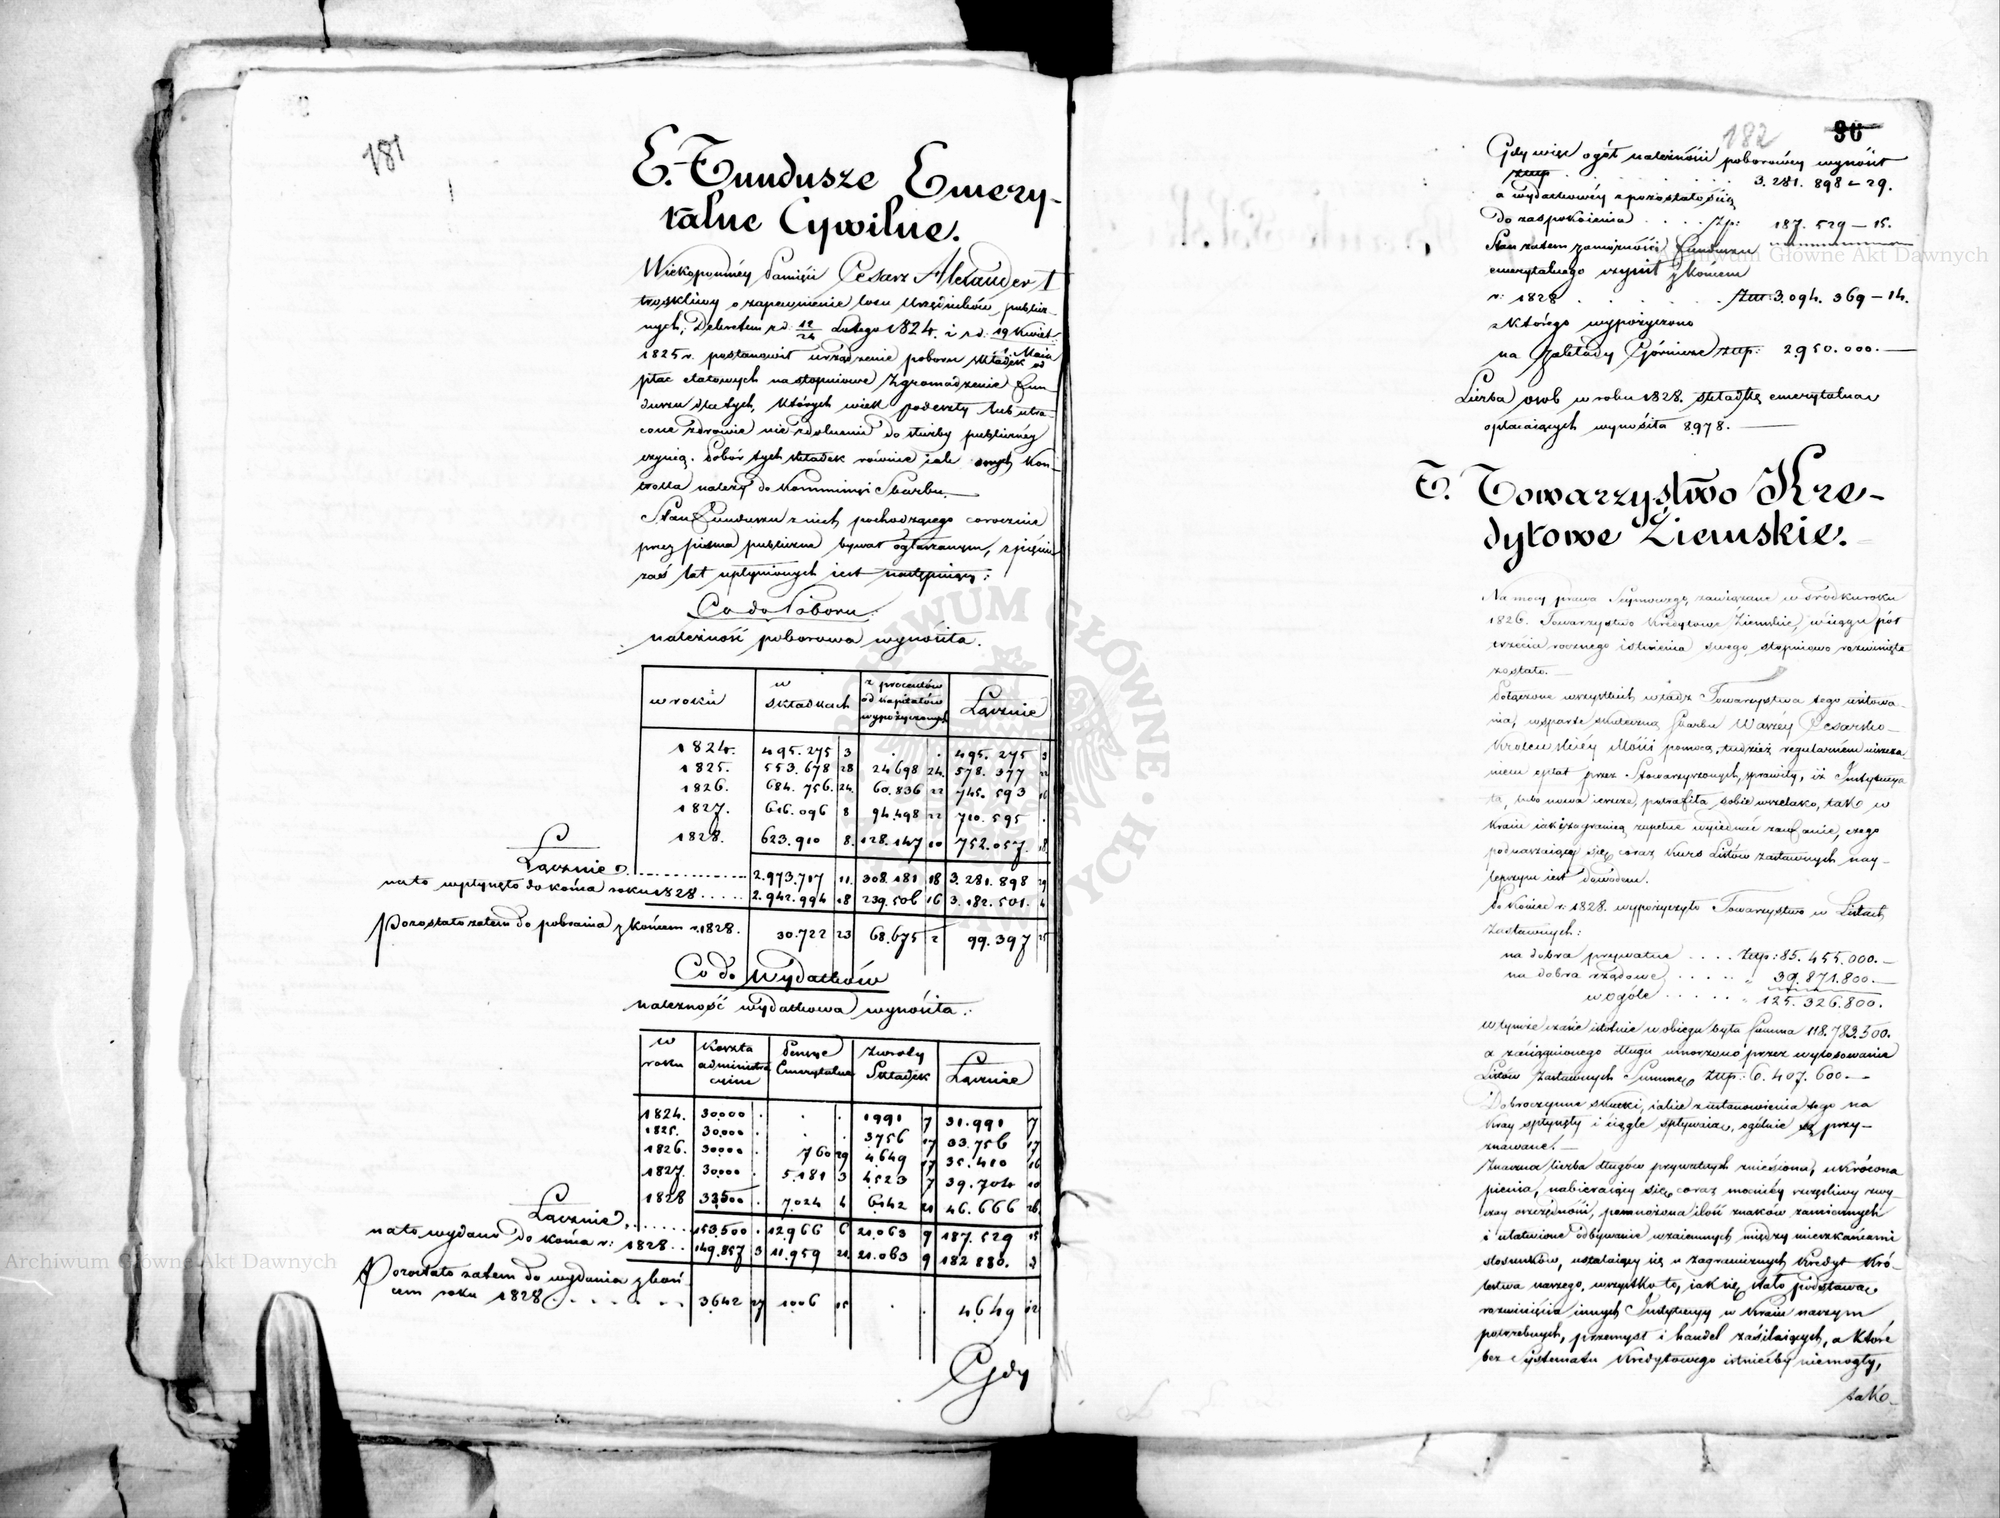 181
E. Fundusze Emery-
talne Cywilne.
Wiekopomnéy Pamięci Cesarz Alexander I
troskliwy o zapewnienie losu Urzędników publicz-
nych, Dekretem z d: 12/24 Lutego 1824. i z d: 19 Kwiet:
1 Maia
1825 r. postanowił urządzenie poboru składek od
płac etatowych na stopniowe Zgromadzenie Fun-
duszu dla tych, których wiek podeszły lub utra-
cone zdrowie niezdolnemi do służby publicznéy
czynią. Pobór tych składek równie iak onych Kon-
trolla należą do Kommissyi Skarbu.—
Stan Funduszu z nich pochodzącego corocznie
przez pisma publiczne bywał ogłaszanym, z pięciu
zaś lat upłynionych iest następuiący:
Co do Poboru.
należność poborowa wynosiła.
w roku
w składkach
z procentów
od kapitałów
wypożyczonych
Łącznie
1824. 495.275 3 . . 495.275 3
1825. 553.678 28 24698 24. 578.377 22
1826. 684.756. 24. 60.836 22 745.593 16
1827. 616.096 8 94.498 22 710.595 .
1828. 623.910 8. 128.147 10 752.057. 18
Łącznie 2.973.717 11. 308.181 18 3.281.898 29
na to wpłynęło do końca roku 1828 ..... 2.942.994 18 239.506 16 3.182.501. 4
Pozostało zatem do pobrania z końcem r. 1828. 30.722 23 68.675 2 99.397 25
Co do Wydatków
należność wydatkowa wynosiła.
w
roku
Koszta
administra
cyine
Pensye
Emerytalne
Zwroty
Składek
Łącznie
1824. 30000 . . . 1991 7 31.991 7
1825. 30.000 . . . 3756 17 33.756 17
1826. 30000 . 760 29 4.649 17 35.410 16
1827. 30000 . 5.181 3 4523 7 39.704 10
1828 33500 . 7.024 4 6142 21 46.666 25
Łącznie ....... 153.500 . 12.966 6 21.063 9 187.529 15
na to wydano do końca r: 1828 .. 149.857 3 11.959 21 21.063 9 182 880. 3
Pozostało zatem do wydania z koń-
cem roku 1828 ...... 3642 27 1006 15 . . 4.649 12
Gdy
182
36
Gdy więc ogół należności poborowéy wynosił
złtp . . . . . . 3.281.898 – 29.
a wydatkowéy z pozostałością
do zaspokoienia . . . . Złp: 187.529 – 15.
Stan zatem zamożności Funduszu
emerytalnego czynił z końcem
r: 1828 . . . . . . Złtp: 3.094.369 – 14.
z którego wypożyczono
na Zakłady Górnicze złtp: 2.950.000.—
Liczba osób w roku 1828. składkę emerytalną
opłacaiących wynosiła 8978.—
F. Towarzystwo Kre-
dytowe Ziemskie.
Na mocy prawa Seymowego, zawiązane w środku roku
1826. Towarzystwo Kredytowe Ziemskie, w ciągu pół
trzecia rocznego istnienia swego, stopniowo rozwinięte
zostało.—
Połączone wszystkich władz Towarzystwa tego usiłowa-
nia, wsparte skuteczną Skarbu Waszey Cesarsko-
Królewskiéy Mości pomocą, tudzież regularném uiszcza-
niem opłat przez Stowarzyszonych, sprawiły, iż Instytucya
ta, lubo nowa ieszcze, potrafiła sobie wszelako, tak w
kraiu iak i zagranicą zupełne wyiednać zaufanie, czego
podnaszaiący się coraz kurs Listów zastawnych nay-
lepszym iest dowodem.
Do końca r: 1828. wypożyczyło Towarzystwo w Listach
Zastawnych:
na dobra prywatne . . . . Złtp: 85.455.000.—
na dobra rządowe . . . . . „ 39.871.800.—
w ogóle . . . . . „ 125.326.800.
w tymże czasie istotnie w obiegu była Summa 118.783.500.
a zaciągnionego długu umorzono przez wylosowanie
Listów Zastawnych Summę Złtp: 6.407.600.—
Dobroczynne skutki, iakie z ustanowienia tego na
Kray spłynęły i ciągle spływaią, ogólnie są przy-
znawane.—
Znaczna liczba długów prywatnych zniesiona, ukrócona
pienia, nabieraiący się coraz mocniéy szczęśliwy zwy-
czay oszczędności, pomnożona ilość znaków zamiennych
i ułatwione odbywanie wzaiemnych między mieszkańcami
stosunków, ustalaiący się u zagranicznych kredyt Kró-
lestwa naszego, wszystko to, iak się stało podstawą
rozwinięcia innych Instytucyy w Kraiu naszym
potrzebnych, przemysł i handel zasilaiących, a które
bez Systematu Kredytowego istniećby niemogły,
tak o-
Archiwum Główne Akt Dawnych
Archiwum Główne Akt Dawnych
ARCHIWUM GŁÓWNE AKT DAWNYCH